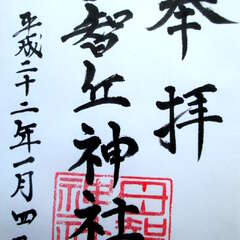 奉拝
智丘神社
平成二十二年一月四